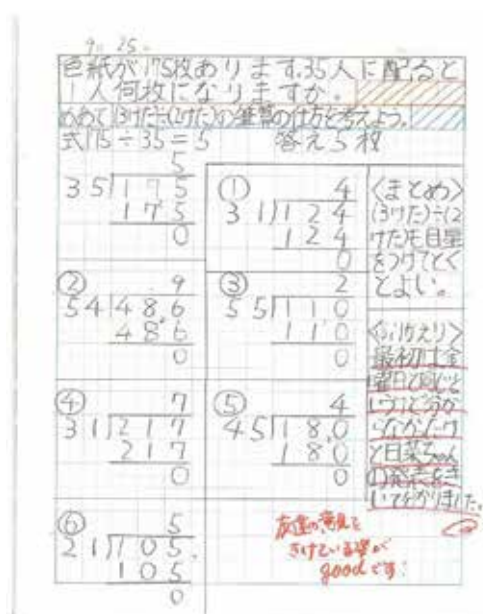 9. 25.
色紙が175枚あります。35人に配ると
1人何枚になりますか。
めあて(3けた)÷(2けた)の筆算の仕方を考えよう。
式175÷35=5 答え5枚
5
35)175
175
0
① 4
31)124
124
0
② 9
54)486
486
0
③ 2
55)110
110
0
④ 7
31)217
217
0
⑤ 4
45)180
180
0
⑥ 5
21)105
105
0
〈まとめ〉
(3けた)÷(2
けた)も目星
をつけてとく
とよい。
〈ふりかえり〉
最初は金
曜日と同じと
分か
らなかったけ
ど日菜ちゃん
の発表をき
いて分かりました。
友達の意見を
きけている姿が
goodです!